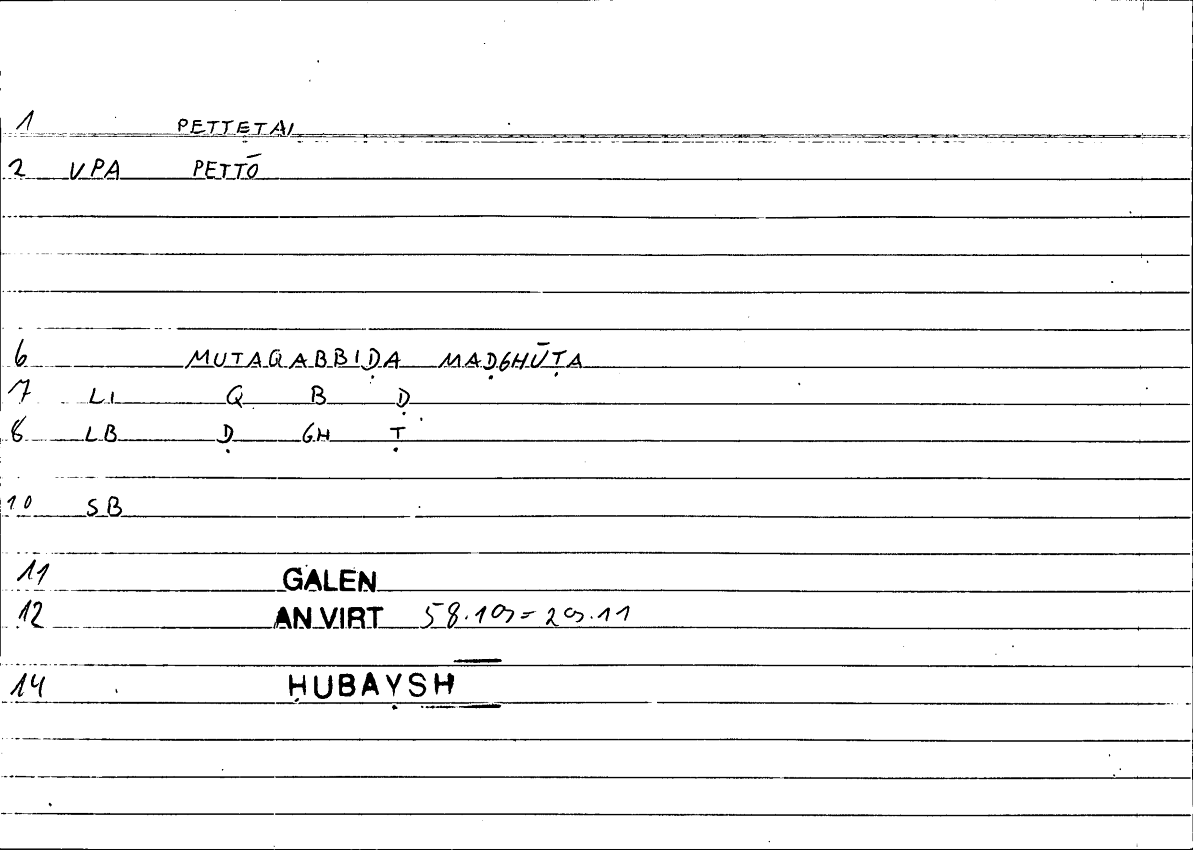 1 PETTETAI
2 VPA PETTŌ
6 MUTAQABBIḌA MAḌGHŪṬA
7 LI Q B Ḍ
8 LB Ḍ GH Ṭ
10 SB
11 GALEN
12 AN VIRT 58.19 = 29.11
14 ḤUBAYSH